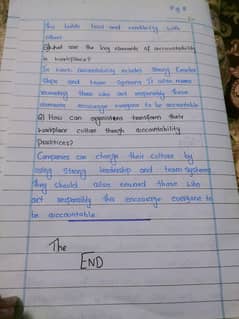 Pg 8
this builds trust and credibility with
others
Q) what are the key elements of accountability
in workplace?
In work accountability includes strong leader
ships and team systems It also means
rewarding those who act responsibly these
elements encourage everyone to be accountable
Q) How can organisations transform their
workplace culture though accountability
practices?
Companies can change their culture by
using strong leadership and team systems
they should also reward those who
act responsibly this encourage everyone to
be accountable
The
END